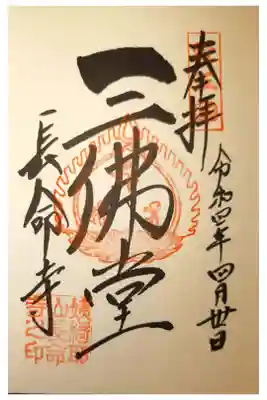 奉拝
令和四年四月卅日
三佛堂
長命寺